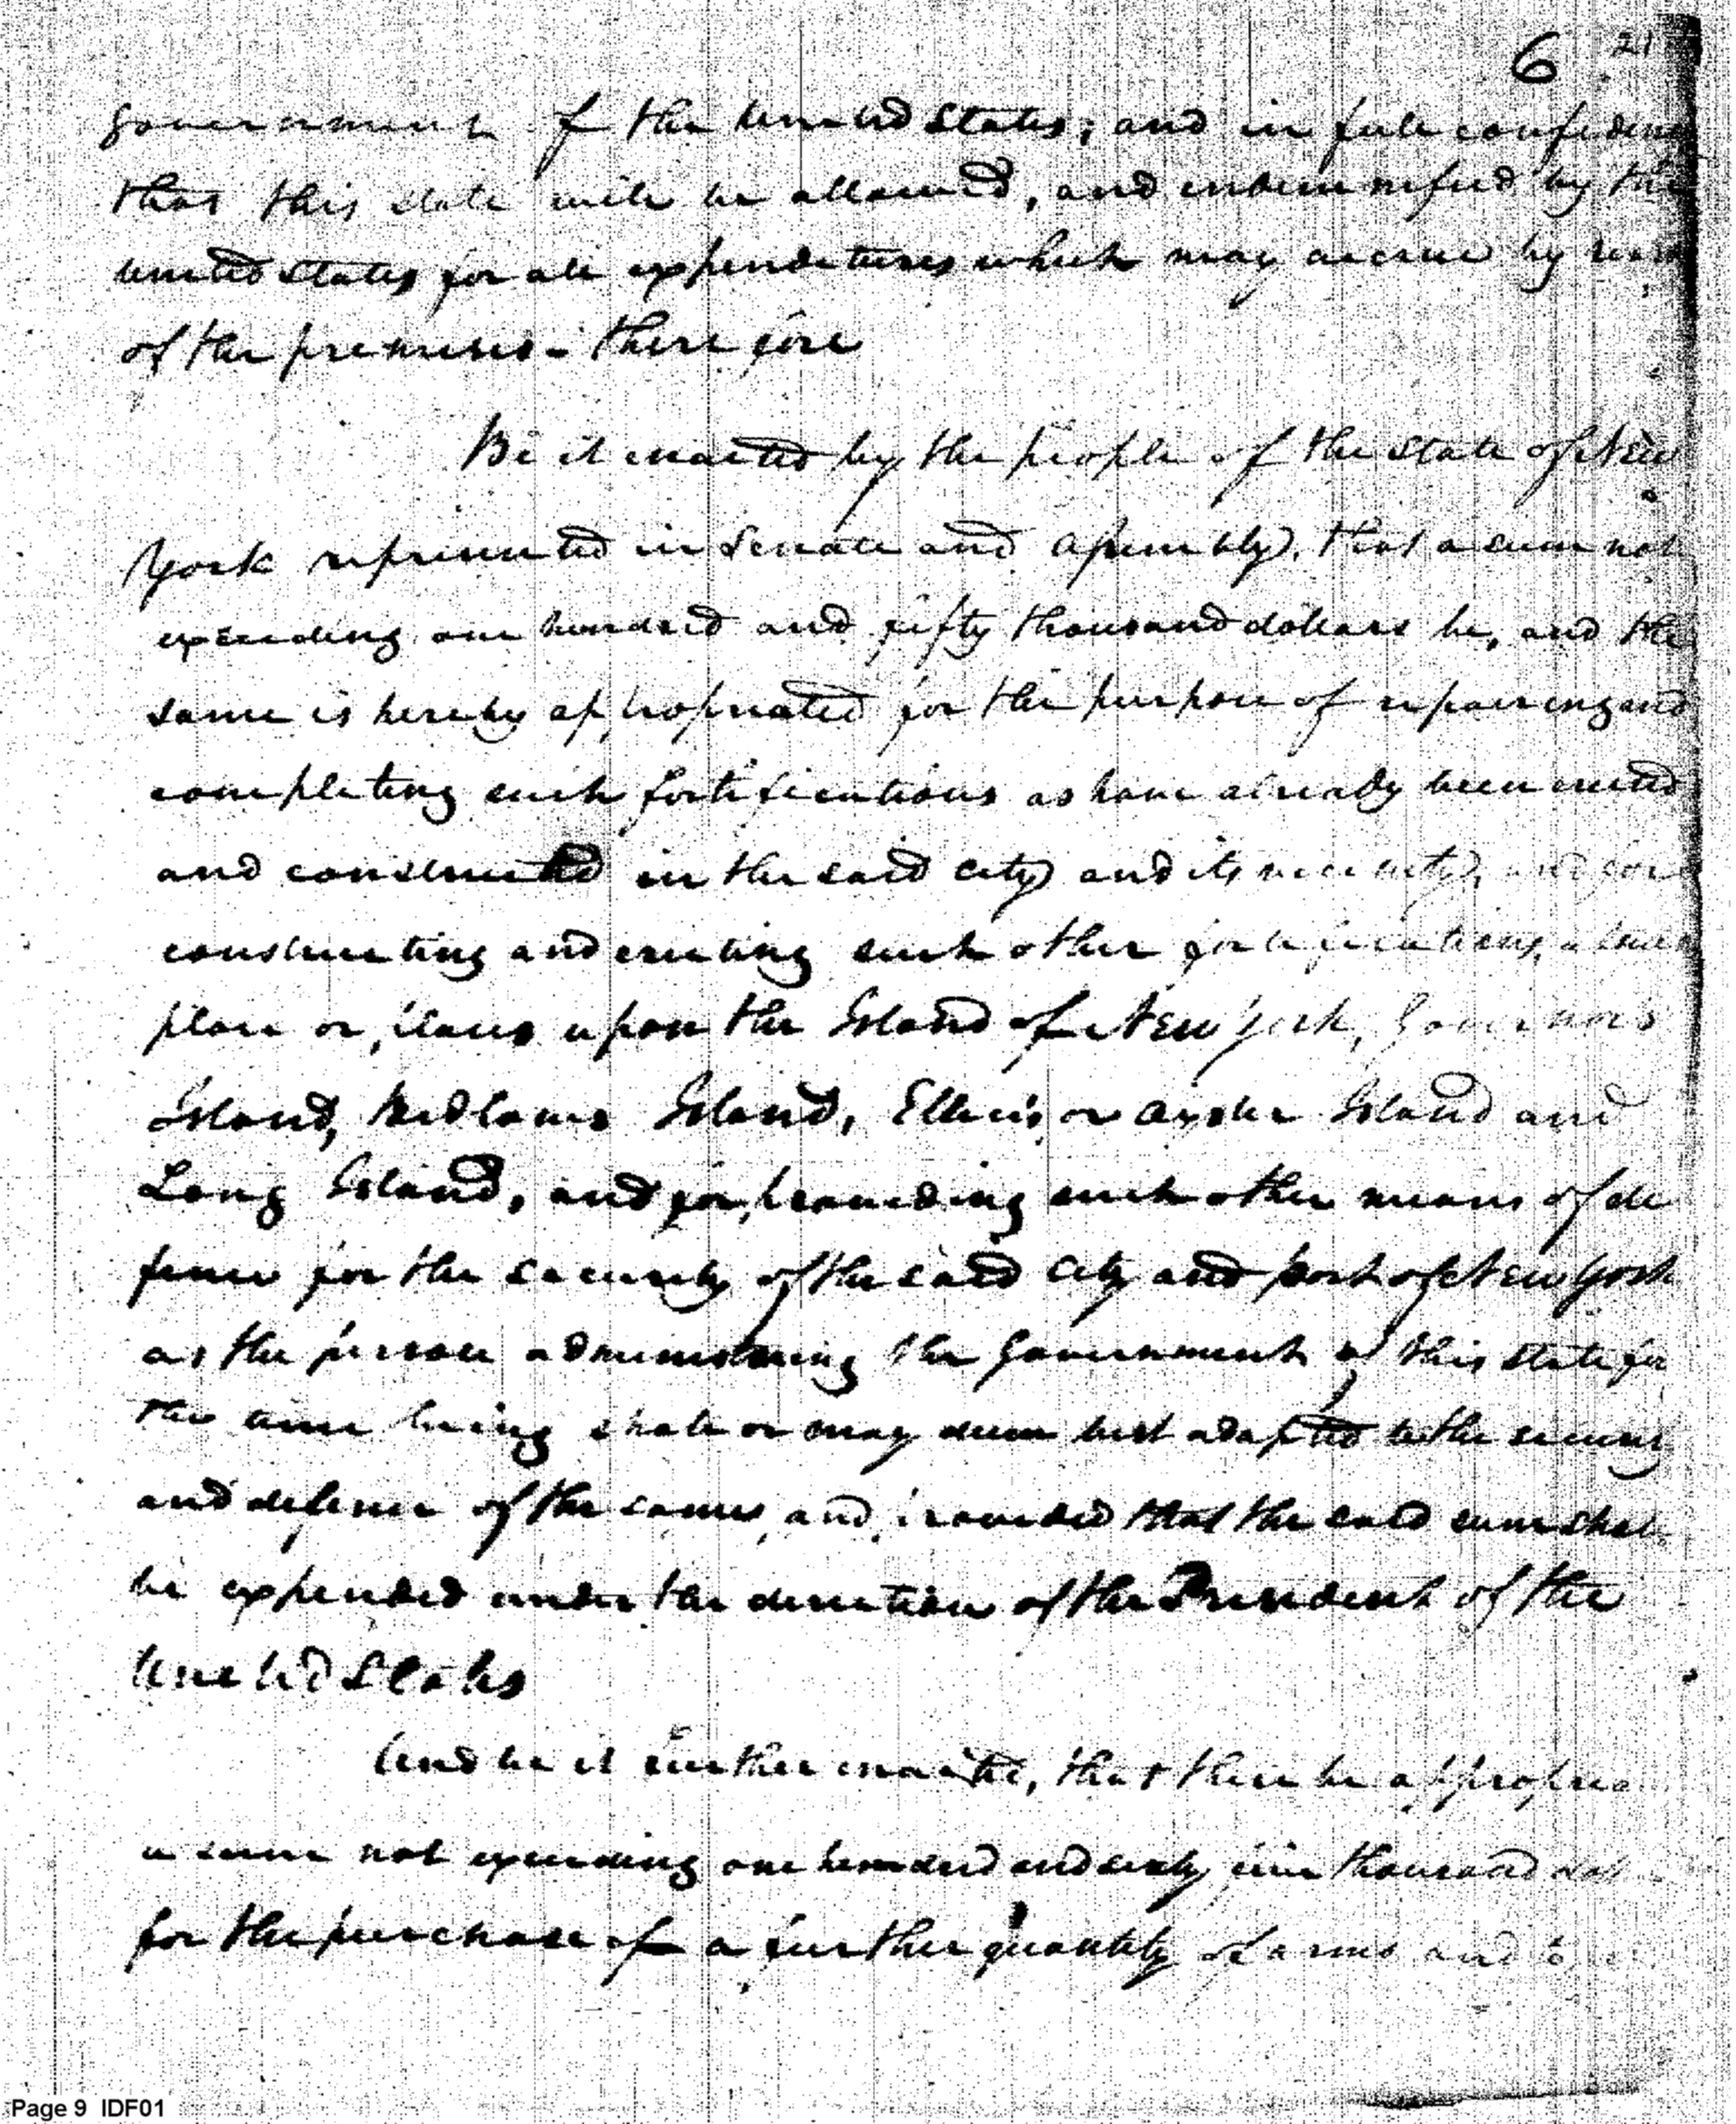 6 21
government of the United States; and in full confidenc
that this state will be allowed, and indemnified by the
United States for all expenditures which may accrue by reas
of the premises - Therefore
Be it enacted by the people of the State of New
York represented in Senate and Assembly, that a sum not
exceeding one hundred and fifty thousand dollars be, and the
same is hereby appropriated for the purpose of repairing and
completing such fortifications as have already been erected
and constructed in the said city and its vicinity, and for
constructing and erecting such other fortifications, at such
place or places upon the Island of New York, Governors
Island, Bedlows Island, Ellis's or Oyster Island and
Long Island, and for providing such other means of de
fence for the security of the said city and port of New York
as the person administering the Government of this State for
the time being shall or may deem best adapted to the security
and defence of the same, and provided that the said sum shall
be expended under the direction of the President of the
United States
And be it further enacted, that there be appropria
a sum not exceeding one hundred and sixty five thousand dol
for the purchase of a further quantity of arms and
Page 9 IDF01